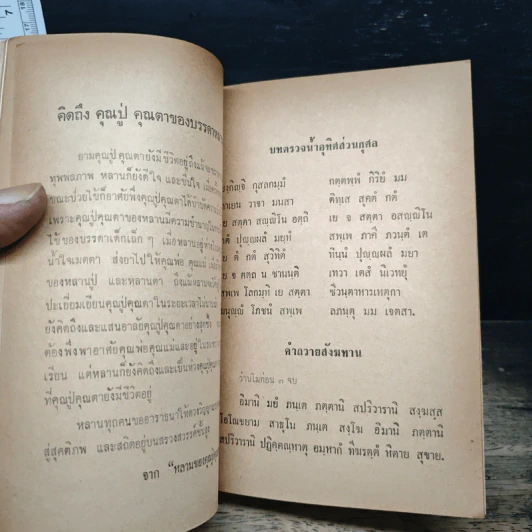 คิดถึง คุณปู่ คุณตาของบรรดา
ยามคุณปู่ คุณตายังมีชีวิตอยู่ถึงแม้
ทุพพลภาพ หลานก็ยังดีใจ และชื่นใจ
ขณะป่วยไข้ก็อาศัยพึ่งคุณปู่คุณตาได้
เพราะคุณปู่คุณตาของหลานมีความชำนาญ
ไข้ของบรรดาเด็กเล็ก ๆ เมื่อหลานอยู่ห่าง
น้ำใจเมตตา ส่งยาไปให้คุณพ่อ คุณแม่
ของหลานปู่ และหลานตา ถึงแม้หลาน
ปะเยี่ยมเยียนคุณปู่คุณตาในระยะเวลา
ยังคิดถึงและแสนอาลัยคุณปู่คุณตาอย่าง
ต้องพึ่งพาอาศัยคุณพ่อคุณแม่และอยู่ใน
เรียน แต่หลานก็ยังคิดถึงและเป็นห่วงคุณปู่
ที่คุณปู่คุณตายังมีชีวิตอยู่
หลานทุกคนขออาราธนาให้ดวงวิญญาณ
สู่สุคติภพ และสถิตอยู่บนสรวงสวรรค์
จาก "หลานของคุณปู่
บทตรวจน้ำอุทิศส่วนกุศล
กุสลกมฺมํ กตฺตพฺพํ กิริยํ มม
วาจา มนสา ติทเส สุคตํ กตํ
สตฺตา สญฺญิโน อตฺถิ เย จ สตฺตา อสญฺญิโน
ปุญฺญผลํ มยฺหํ สพฺเพ ภาคี ภวนฺตุ เต
ตํ กตํ สุวิทิตํ ทินฺนํ ปุญฺญผลํ มยา
จ ตตฺถ น ชานนฺติ เทวา เตสํ นิเวทยุํ
สพฺเพ โลกมฺหิ เย สตฺตา ชีวนฺตาหารเหตุกา
มนุญฺญํ โภชนํ สพฺเพ ลภนฺตุ มม เจตสา.
คำถวายสังฆทาน
ว่านโมก่อน ๓ จบ
อิมานิ มยํ ภนฺเต ภตฺตานิ สปริวารานิ สงฺฆสฺส
โอโณชยาม สาธุโน ภนฺเต สงฺโฆ อิมานิ ภตฺตานิ
สปริวารานิ ปฏิคฺคณฺหาตุ อมฺหากํ ทีฆรตฺตํ หิตาย สุขาย.